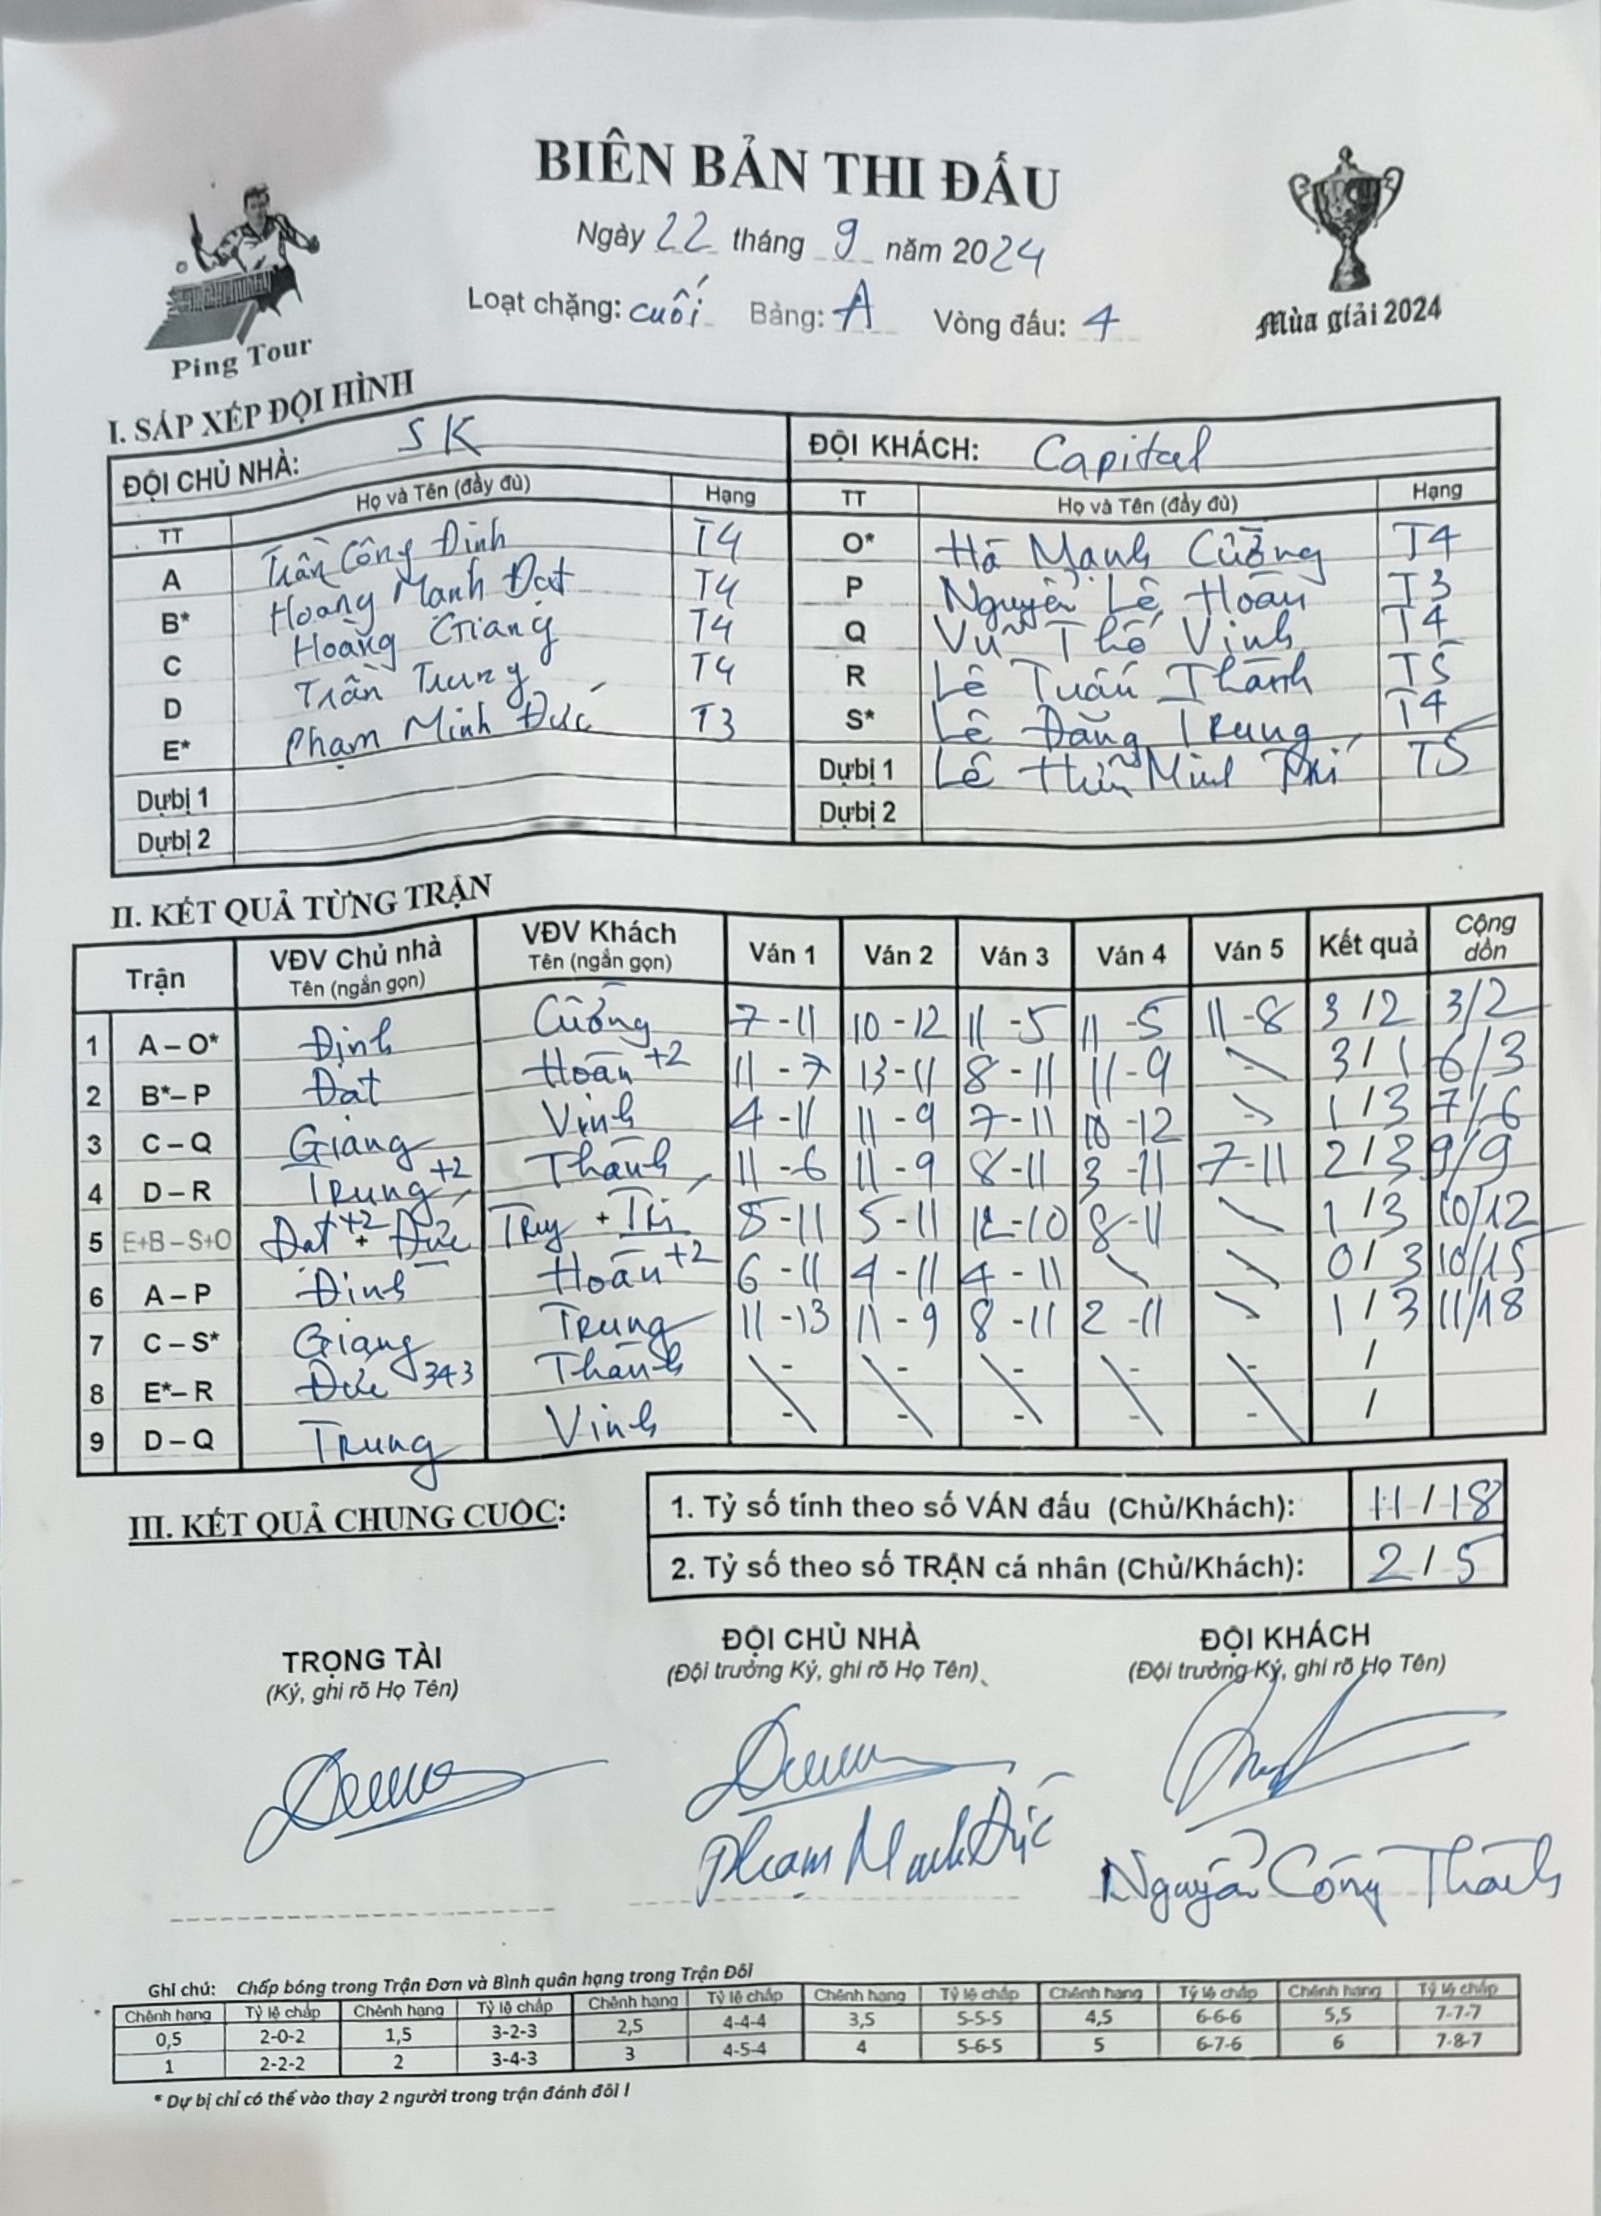 BIÊN BẢN THI ĐẤU
Ngày 22 tháng 9 năm 2024
Loạt chặng: cuối Bảng: A Vòng đấu: 4
Ping Tour
Mùa giải 2024
I. SẮP XẾP ĐỘI HÌNH
ĐỘI CHỦ NHÀ: SK ĐỘI KHÁCH: Capital
TT Họ và Tên (đầy đủ) Hạng TT Họ và Tên (đầy đủ) Hạng
A Trần Công Định T4 O* Hà Mạnh Cường T4
B* Hoàng Mạnh Đạt T4 P Nguyễn Lê Hoàn T3
C Hoàng Giang T4 Q Vũ Thế Vinh T4
D Trần Trung T4 R Lê Tuấn Thành T5
E* Phạm Minh Đức T3 S* Lê Đăng Trung T4
Dự bị 1 Dự bị 1 Lê Minh T5
Dự bị 2 Dự bị 2
II. KẾT QUẢ TỪNG TRẬN
Trận VĐV Chủ nhà Tên (ngắn gọn) VĐV Khách Tên (ngắn gọn) Ván 1 Ván 2 Ván 3 Ván 4 Ván 5 Kết quả Cộng dồn
1 A – O* Định Cường 7 - 11 10 - 12 11 - 5 11 - 5 11 - 8 3 / 2 3/2
2 B* – P Đạt Hoàn +2 11 - 7 13 - 11 8 - 11 11 - 9 - 3 / 1 6/3
3 C – Q Giang Vinh 4 - 11 11 - 9 7 - 11 10 - 12 - 1 / 3 7/6
4 D – R Trung +2 Thành 11 - 6 11 - 9 8 - 11 3 - 11 7 - 11 2 / 3 9/9
5 E+B – S+O Đạt +2 + Đức + 5 - 11 5 - 11 12 - 10 8 - 11 - 1 / 3 10/12
6 A – P Định Hoàn +2 6 - 11 4 - 11 4 - 11 - - 0 / 3 10/15
7 C – S* Giang Trung 11 - 13 11 - 9 8 - 11 2 - 11 - 1 / 3 11/18
8 E* – R Đức 343 Thành - - - - - /
9 D – Q Trung Vinh - - - - - /
III. KẾT QUẢ CHUNG CUỘC:
1. Tỷ số tính theo số VÁN đấu (Chủ/Khách): 11 / 18
2. Tỷ số theo số TRẬN cá nhân (Chủ/Khách): 2 / 5
TRỌNG TÀI ĐỘI CHỦ NHÀ ĐỘI KHÁCH
(Ký, ghi rõ Họ Tên) (Đội trưởng Ký, ghi rõ Họ Tên) (Đội trưởng Ký, ghi rõ Họ Tên)
Phạm Minh Đức Nguyễn Công Thành
Ghi chú: Chấp bóng trong Trận Đơn và Bình quân hạng trong Trận Đôi
Chênh hạng Tỷ lệ chấp Chênh hạng Tỷ lệ chấp Chênh hạng Tỷ lệ chấp Chênh hạng Tỷ lệ chấp Chênh hạng Tỷ lệ chấp Chênh hạng Tỷ lệ chấp
0,5 2-0-2 1,5 3-2-3 2,5 4-4-4 3,5 5-5-5 4,5 6-6-6 5,5 7-7-7
1 2-2-2 2 3-4-3 3 4-5-4 4 5-6-5 5 6-7-6 6 7-8-7
* Dự bị chỉ có thể vào thay 2 người trong trận đánh đôi !